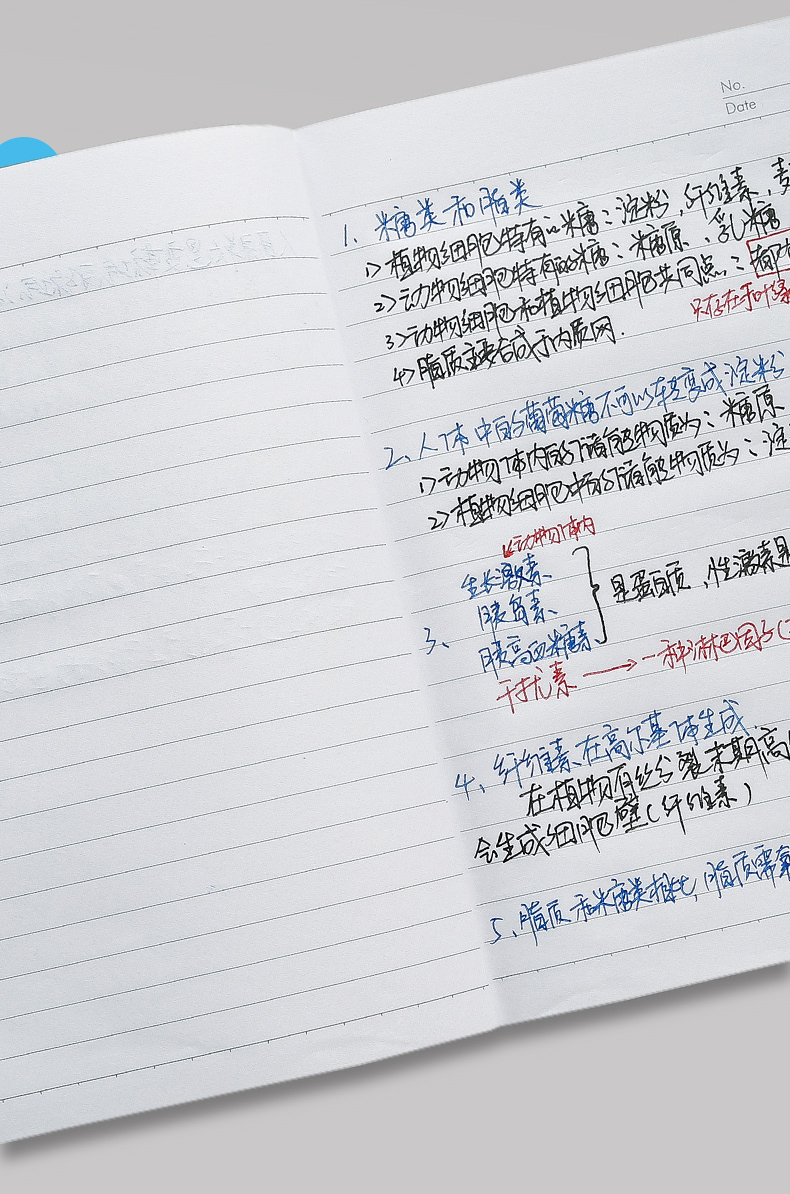 No.
Date
1、糖类和脂类
1>植物细胞特有的糖：淀粉，纤维素，麦
2>动物细胞特有的糖：糖原、乳糖
3>动物细胞和植物细胞共同点：都
只存在于叶绿
4>脂质主要合成于内质网.
2、人体中的葡萄糖不可以转变成淀粉
1>动物体内的储能物质为：糖原
2>植物细胞中的储能物质为：淀
动物体内
生长激素、
胰岛素、
3、
胰高血糖素、
是蛋白质，性激素是
干扰素 → 一种淋巴因子(
4、纤维素在高尔基体生成.
在植物有丝分裂末期高
会生成细胞壁(纤维素)
5、脂质和糖类相比，脂质需氧